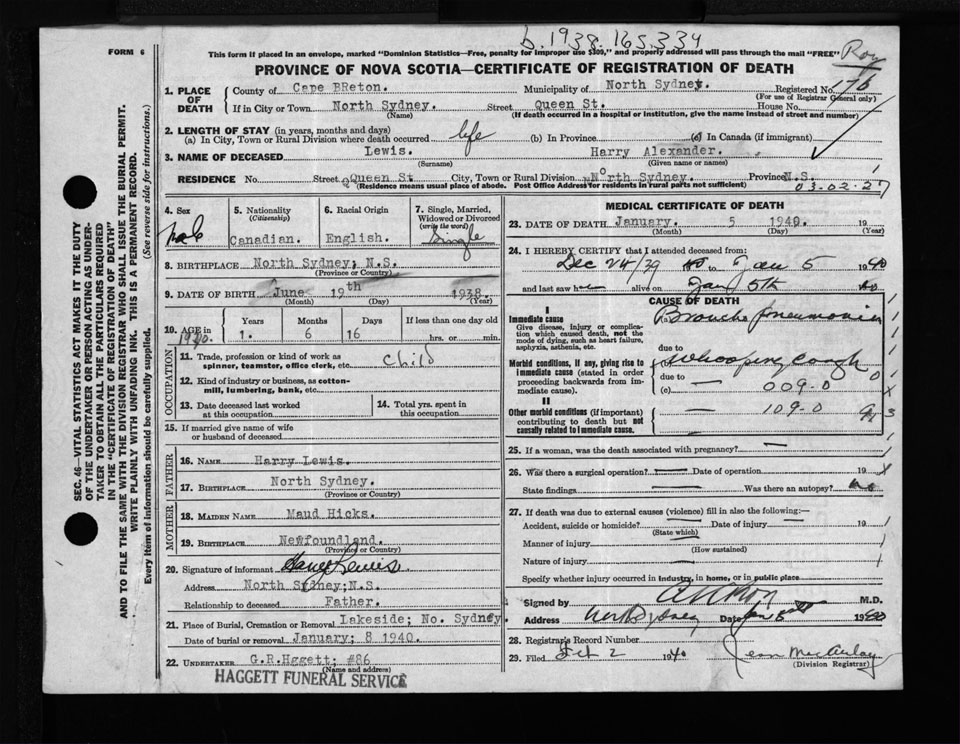 b. 1938. 165.334
FORM 6
This form if placed in an envelope, marked "Dominion Statistics—Free, penalty for improper use $300," and properly addressed will pass through the mail "FREE"
Roy
PROVINCE OF NOVA SCOTIA—CERTIFICATE OF REGISTRATION OF DEATH
176
1. PLACE OF DEATH
County of Cape BReton. Municipality of North Sydney. Registered No.
(For use of Registrar General only)
If in City or Town North Sydney. Street Queen St. House No.
(Name) (If death occurred in a hospital or institution, give the name instead of street and number)
2. LENGTH OF STAY (in years, months and days)
(a) In City, Town or Rural Division where death occurred life (b) In Province (c) In Canada (if immigrant)
3. NAME OF DECEASED Lewis. Harry Alexander.
(Surname) (Given name or names)
RESIDENCE No. Street Queen St City, Town or Rural Division North Sydney. Province N.S.
(Residence means usual place of abode. Post Office Address for residents in rural parts not sufficient)
03.02.27
4. Sex
male
5. Nationality
(Citizenship)
Canadian.
6. Racial Origin
English.
7. Single, Married, Widowed or Divorced
(write the word)
Single
8. BIRTHPLACE North Sydney; N.S.
(Province or Country)
9. DATE OF BIRTH June 19th 1938.
(Month) (Day) (Year)
10. AGE in
1940.
Years Months Days If less than one day old
1. 6 16 hrs. or min.
OCCUPATION
11. Trade, profession or kind of work as spinner, teamster, office clerk, etc. Child
12. Kind of industry or business, as cotton-mill, lumbering, bank, etc.
13. Date deceased last worked at this occupation
14. Total yrs. spent in this occupation
15. If married give name of wife or husband of deceased
FATHER
16. NAME Harry Lewis.
17. BIRTHPLACE North Sydney.
(Province or Country)
MOTHER
18. MAIDEN NAME Maud Hicks.
19. BIRTHPLACE Newfoundland.
(Province or Country)
20. Signature of informant Harry Lewis
Address North Sydney; N.S.
Relationship to deceased Father.
21. Place of Burial, Cremation or Removal Lakeside; No. Sydney.
Date of burial or removal January; 8 1940.
22. UNDERTAKER G.R.Hggett; #86
(Name and address)
HAGGETT FUNERAL SERVICE
MEDICAL CERTIFICATE OF DEATH
23. DATE OF DEATH January. 5 1940. 19
(Month) (Day) (Year)
24. I HEREBY CERTIFY that I attended deceased from:
Dec 24/39 to Jan 5 1940
and last saw h alive on Jan 5th
CAUSE OF DEATH
I
Immediate cause
Give disease, injury or complication which caused death, not the mode of dying, such as heart failure, asphyxia, asthenia, etc.
Broncho pneumonia
due to
Morbid conditions, if any, giving rise to immediate cause (stated in order proceeding backwards from immediate cause).
(b) Whooping Cough
due to
(c) 009.0
II
Other morbid conditions (if important) contributing to death but not causally related to immediate cause.
109.0
25. If a woman, was the death associated with pregnancy?
26. Was there a surgical operation? Date of operation 19
State findings Was there an autopsy? no
27. If death was due to external causes (violence) fill in also the following:—
Accident, suicide or homicide? Date of injury 19
(State which)
Manner of injury
(How sustained)
Nature of injury
Specify whether injury occurred in industry, in home, or in public place
Signed by M.D.
Address North Sydney Date 1940
28. Registrar's Record Number
29. Filed Feb 2 1940
(Division Registrar)
SEC. 46—VITAL STATISTICS ACT MAKES IT THE DUTY OF THE UNDERTAKER OR PERSON ACTING AS UNDERTAKER TO OBTAIN ALL THE PARTICULARS REQUIRED IN THE "CERTIFICATE OF REGISTRATION OF DEATH" AND TO FILE THE SAME WITH THE DIVISION REGISTRAR WHO SHALL ISSUE THE BURIAL PERMIT.
WRITE PLAINLY WITH UNFADING INK. THIS IS A PERMANENT RECORD.
Every item of information should be carefully supplied. (See reverse side for instructions.)